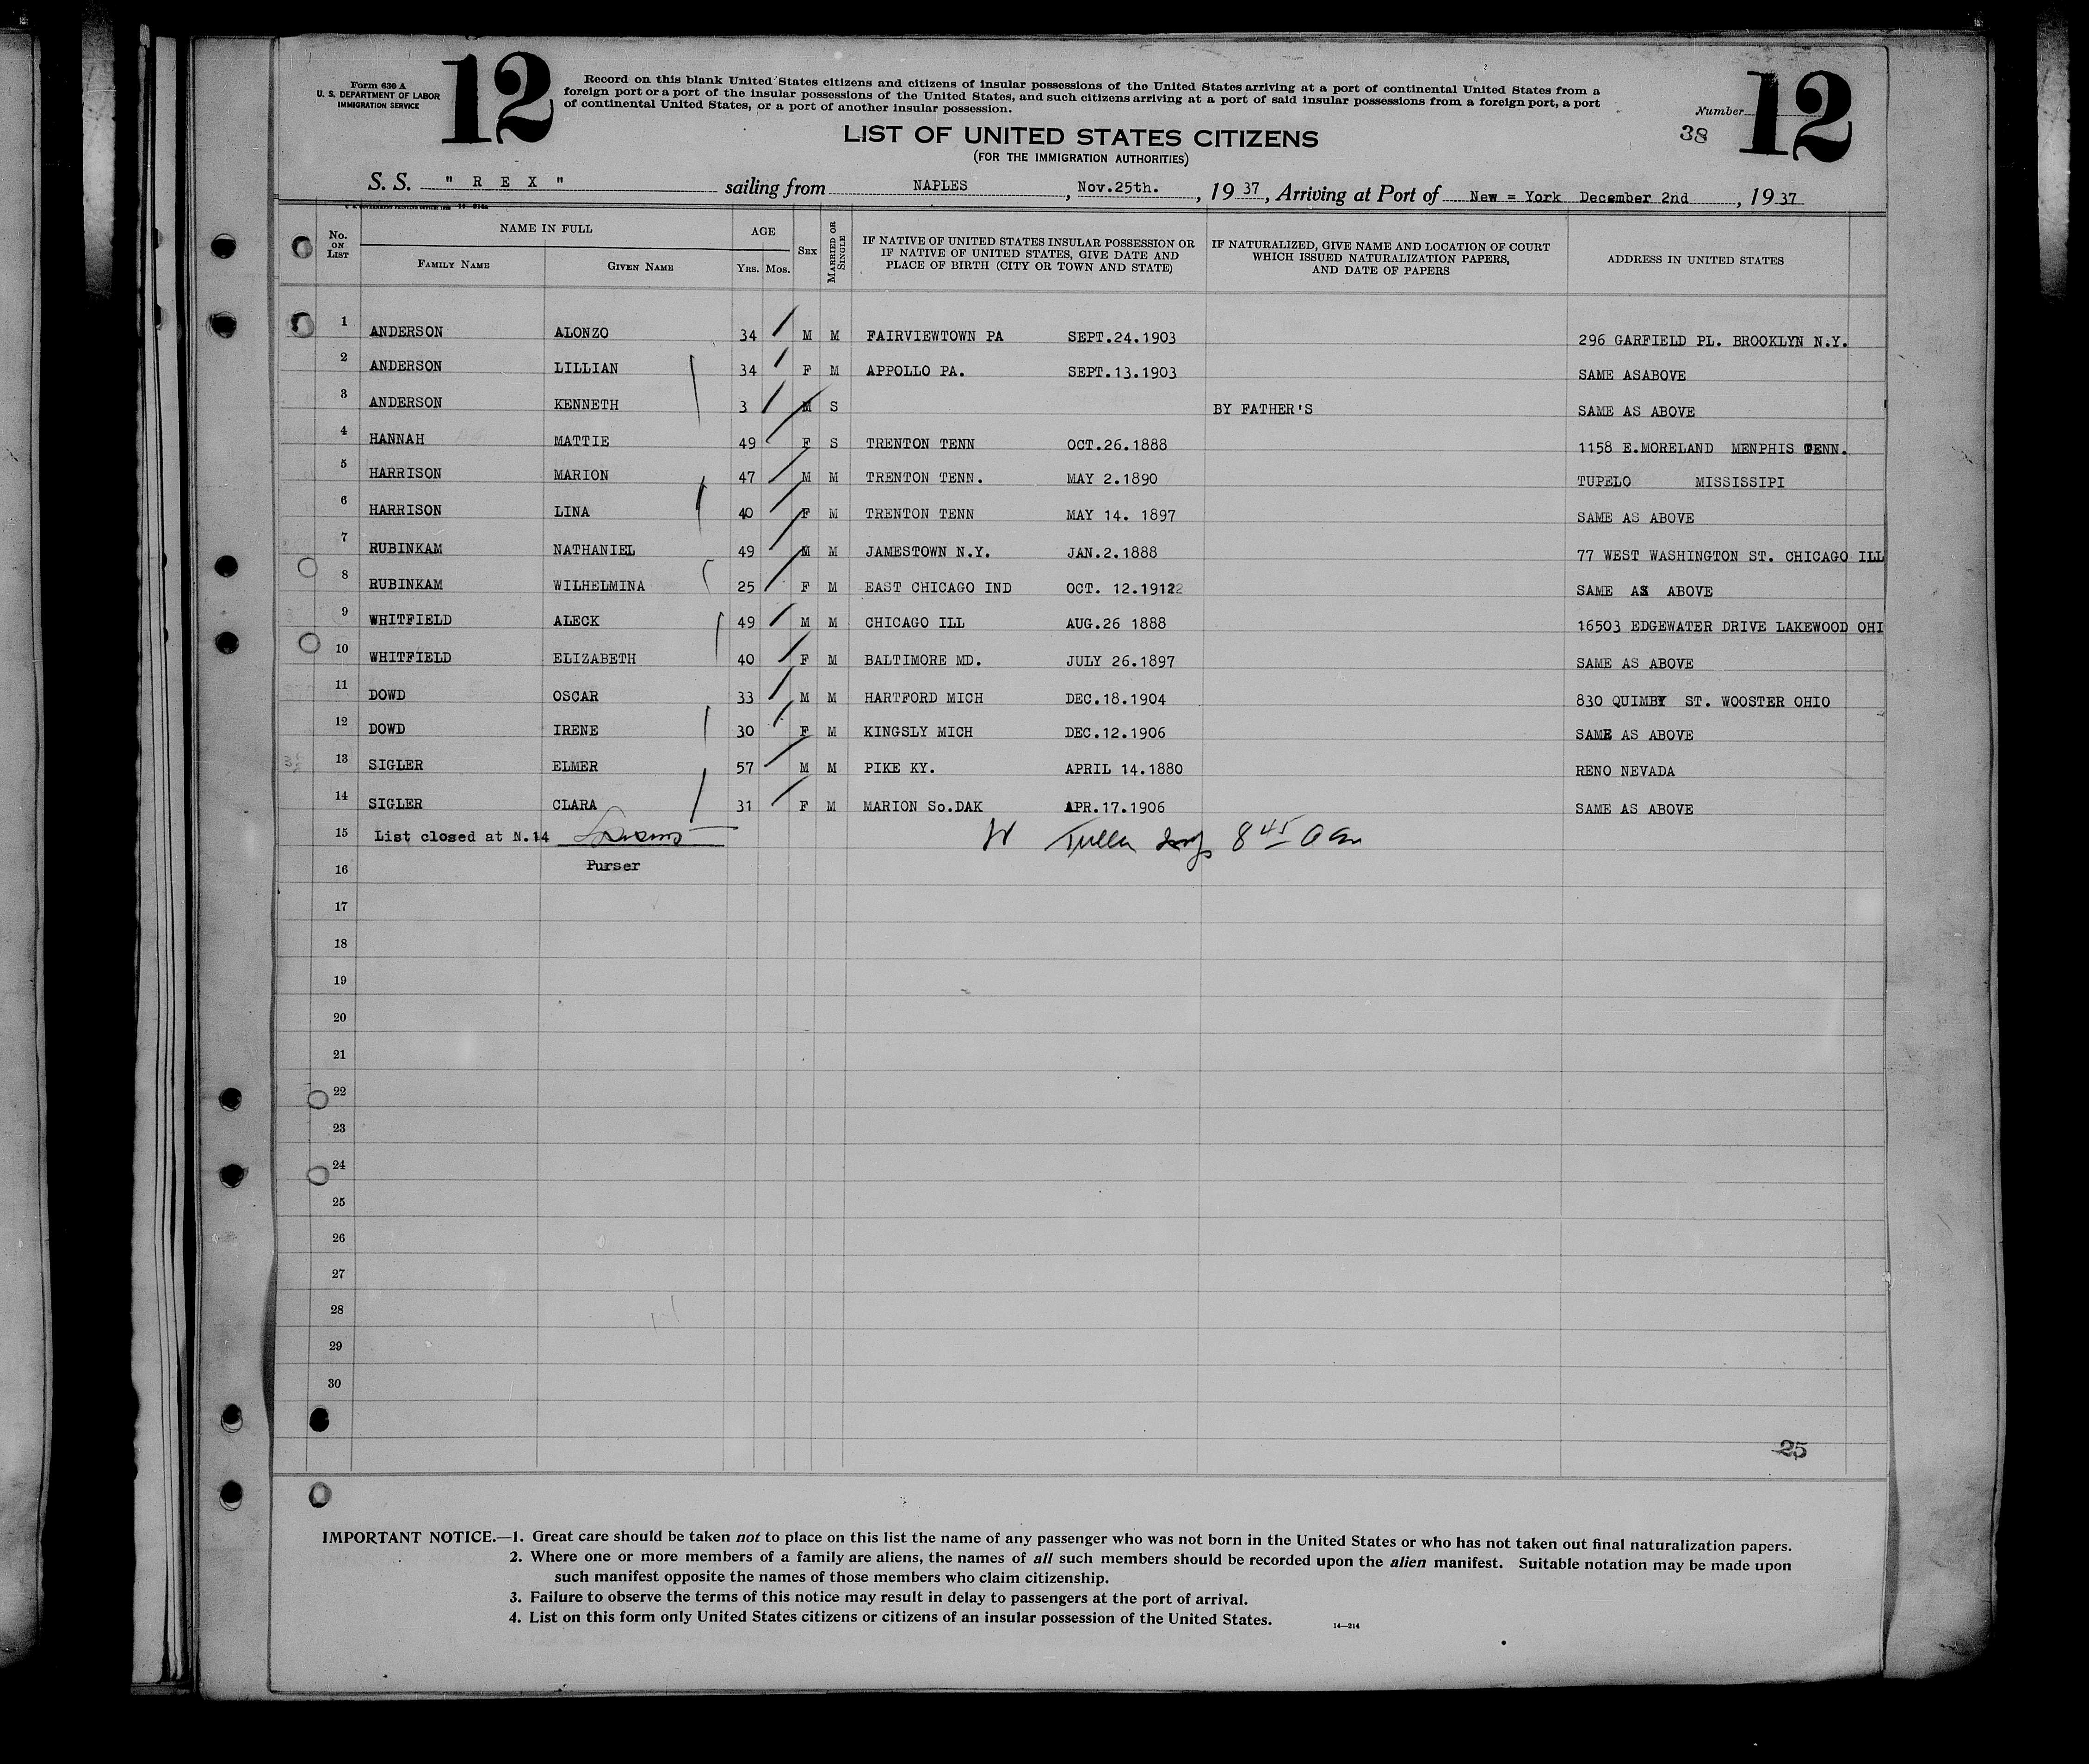 12
Form 630 A
U. S. DEPARTMENT OF LABOR
IMMIGRATION SERVICE
Record on this blank United States citizens and citizens of insular possessions of the United States arriving at a port of continental United States from a
foreign port or a port of the insular possessions of the United States, and such citizens arriving at a port of said insular possessions from a foreign port, a port
of continental United States, or a port of another insular possession.
Number 12
38
LIST OF UNITED STATES CITIZENS
(FOR THE IMMIGRATION AUTHORITIES)
S. S. " R E X " sailing from NAPLES, Nov.25th., 19 37, Arriving at Port of New = York December 2nd, 19 37
No. ON LIST NAME IN FULL FAMILY NAME GIVEN NAME AGE YRS. MOS. SEX MARRIED OR SINGLE IF NATIVE OF UNITED STATES INSULAR POSSESSION OR IF NATIVE OF UNITED STATES, GIVE DATE AND PLACE OF BIRTH (CITY OR TOWN AND STATE) IF NATURALIZED, GIVE NAME AND LOCATION OF COURT WHICH ISSUED NATURALIZATION PAPERS, AND DATE OF PAPERS ADDRESS IN UNITED STATES
1 ANDERSON ALONZO 34 M M FAIRVIEWTOWN PA SEPT.24.1903 296 GARFIELD PL. BROOKLYN N.Y.
2 ANDERSON LILLIAN 34 F M APPOLLO PA. SEPT.13.1903 SAME ASABOVE
3 ANDERSON KENNETH 3 M S BY FATHER'S SAME AS ABOVE
4 HANNAH MATTIE 49 F S TRENTON TENN OCT.26.1888 1158 E.MORELAND MENPHIS TENN.
5 HARRISON MARION 47 M M TRENTON TENN. MAY 2.1890 TUPELO MISSISSIPI
6 HARRISON LINA 40 F M TRENTON TENN MAY 14. 1897 SAME AS ABOVE
7 RUBINKAM NATHANIEL 49 M M JAMESTOWN N.Y. JAN.2.1888 77 WEST WASHINGTON ST. CHICAGO ILL
8 RUBINKAM WILHELMINA 25 F M EAST CHICAGO IND OCT. 12.19122 SAME AS ABOVE
9 WHITFIELD ALECK 49 M M CHICAGO ILL AUG.26 1888 16503 EDGEWATER DRIVE LAKEWOOD OHI
10 WHITFIELD ELIZABETH 40 F M BALTIMORE MD. JULY 26.1897 SAME AS ABOVE
11 DOWD OSCAR 33 M M HARTFORD MICH DEC.18.1904 830 QUIMBY ST. WOOSTER OHIO
12 DOWD IRENE 30 F M KINGSLY MICH DEC.12.1906 SAME AS ABOVE
13 SIGLER ELMER 57 M M PIKE KY. APRIL 14.1880 RENO NEVADA
14 SIGLER CLARA 31 F M MARION So.DAK APR.17.1906 SAME AS ABOVE
15 List closed at N.14 8 45
16 Purser
17
18
19
20
21
22
23
24
25
26
27
28
29
30
25
IMPORTANT NOTICE.—1. Great care should be taken not to place on this list the name of any passenger who was not born in the United States or who has not taken out final naturalization papers.
2. Where one or more members of a family are aliens, the names of all such members should be recorded upon the alien manifest. Suitable notation may be made upon
such manifest opposite the names of those members who claim citizenship.
3. Failure to observe the terms of this notice may result in delay to passengers at the port of arrival.
4. List on this form only United States citizens or citizens of an insular possession of the United States.
14—214